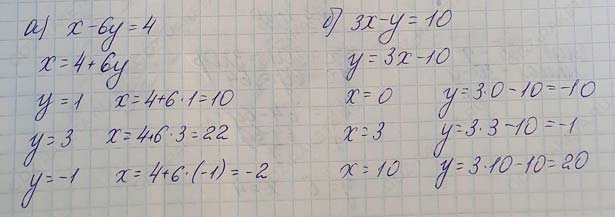 а) x-6y=4
x=4+6y
y=1 x=4+6·1=10
y=3 x=4+6·3=22
y=-1 x=4+6·(-1)=-2
б) 3x-y=10
y=3x-10
x=0 y=3·0-10=-10
x=3 y=3·3-10=-1
x=10 y=3·10-10=20